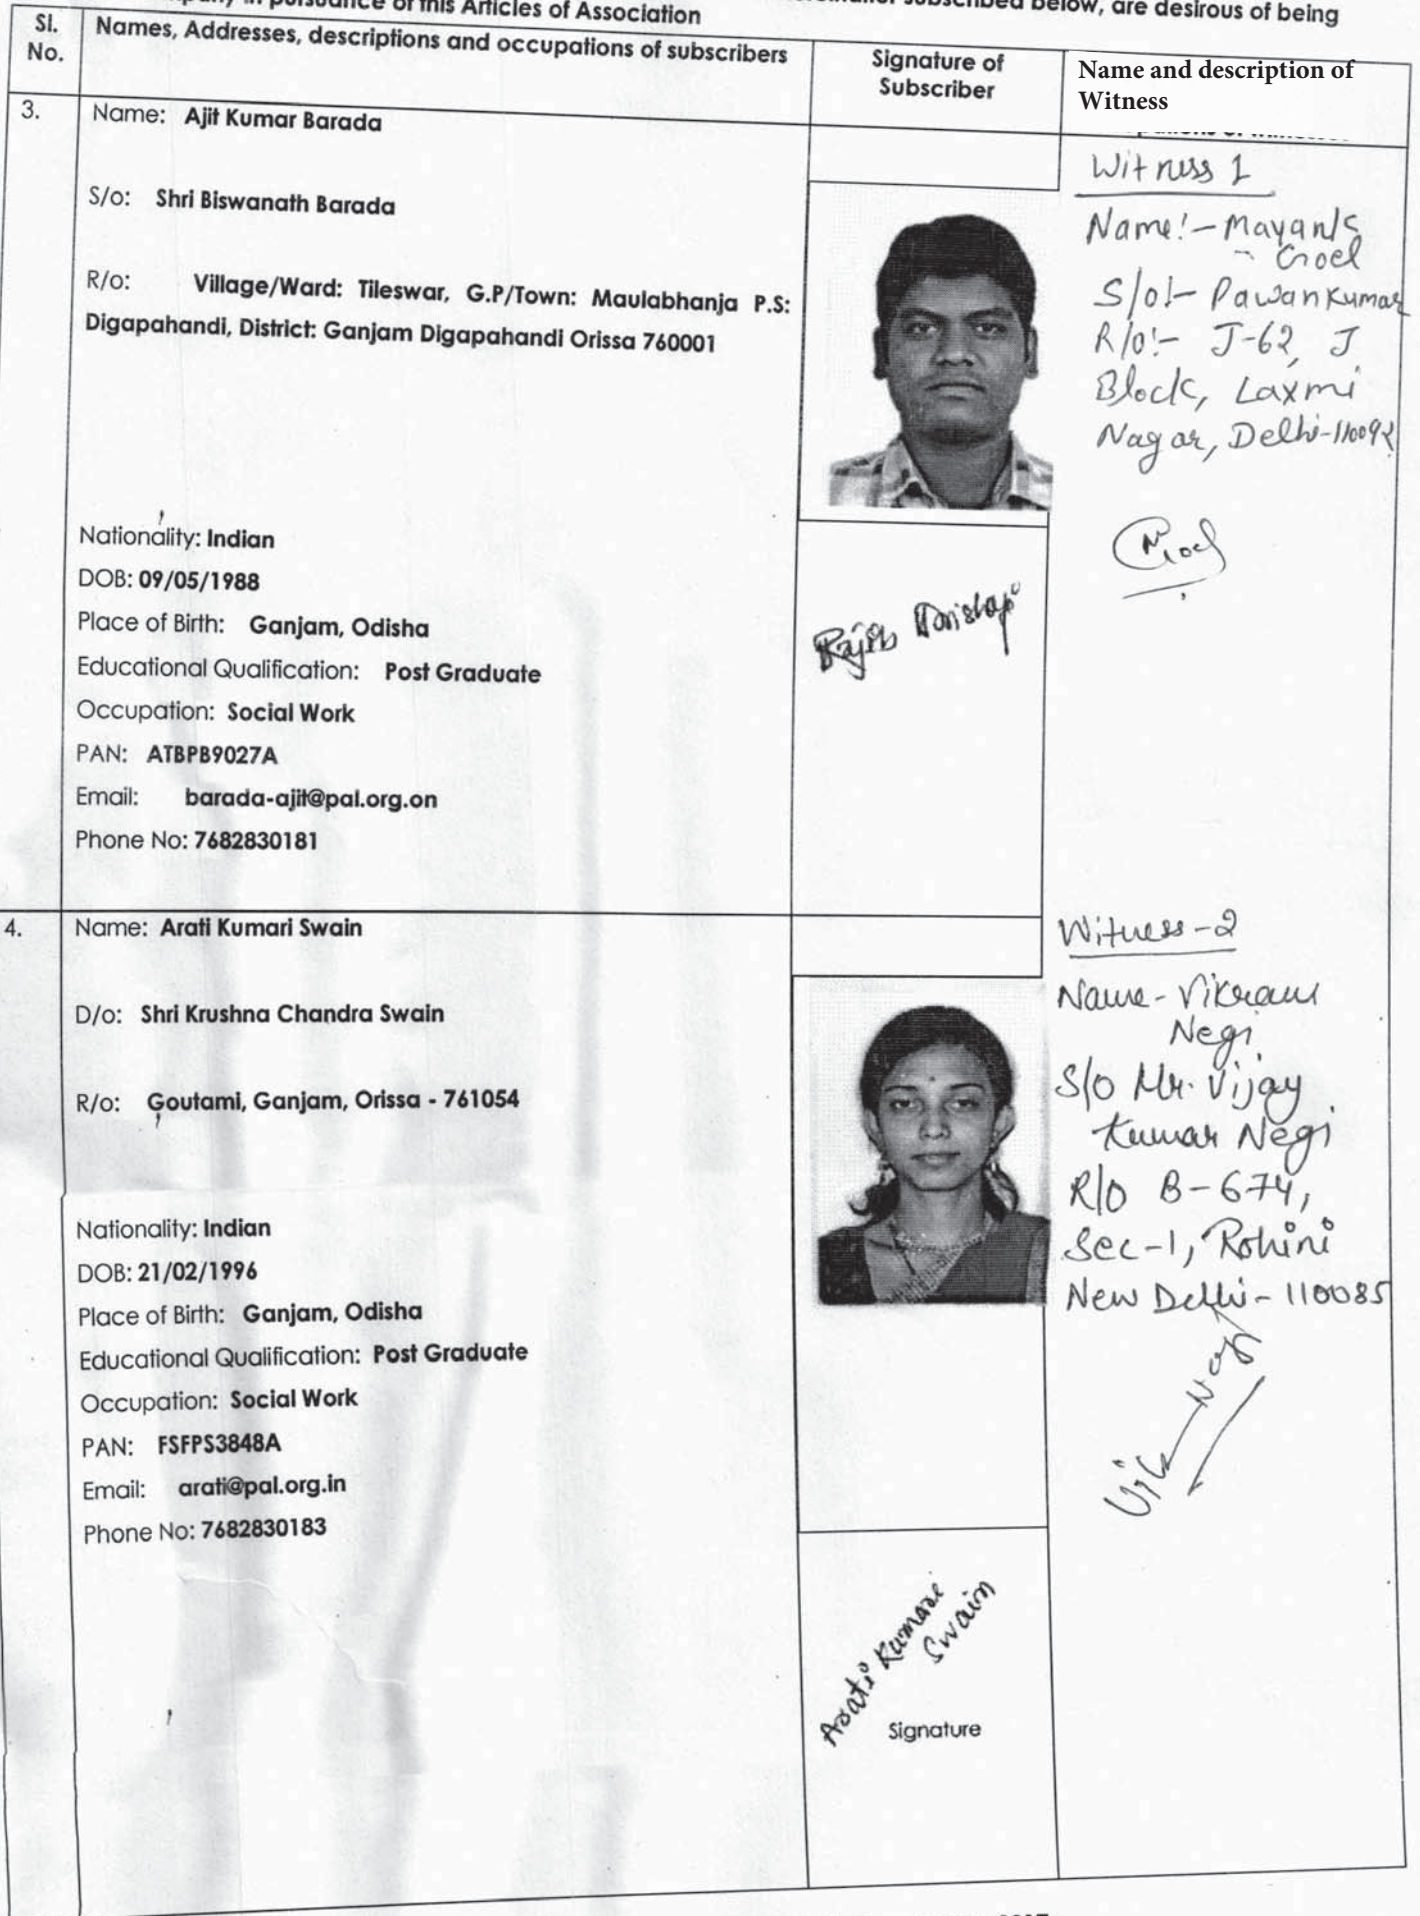 in pursuance of this Articles of Association
subscribed below, are desirous of being
Sl.
No.
Names, Addresses, descriptions and occupations of subscribers
Signature of
Subscriber
Name and description of
Witness
3.
Name: Ajit Kumar Barada
S/o: Shri Biswanath Barada
R/o: Village/Ward: Tileswar, G.P/Town: Maulabhanja P.S:
Digapahandi, District: Ganjam Digapahandi Orissa 760001
Nationality: Indian
DOB: 09/05/1988
Place of Birth: Ganjam, Odisha
Educational Qualification: Post Graduate
Occupation: Social Work
PAN: ATBPB9027A
Email: barada-ajit@pal.org.on
Phone No: 7682830181
Rajib
Witness 1
Name:- Mayank
- Goel
S/o:- Pawan Kumar
R/o:- J-62, J
Block, Laxmi
Nagar, Delhi-110092
Goel
4.
Name: Arati Kumari Swain
D/o: Shri Krushna Chandra Swain
R/o: Goutami, Ganjam, Orissa - 761054
Nationality: Indian
DOB: 21/02/1996
Place of Birth: Ganjam, Odisha
Educational Qualification: Post Graduate
Occupation: Social Work
PAN: FSFPS3848A
Email: arati@pal.org.in
Phone No: 7682830183
Arati Kumari
Swain
Signature
Witness-2
Name- Vikram
Negi
S/o Mr. Vijay
Kumar Negi
R/O B-674,
Sec-1, Rohini
New Delhi- 110085